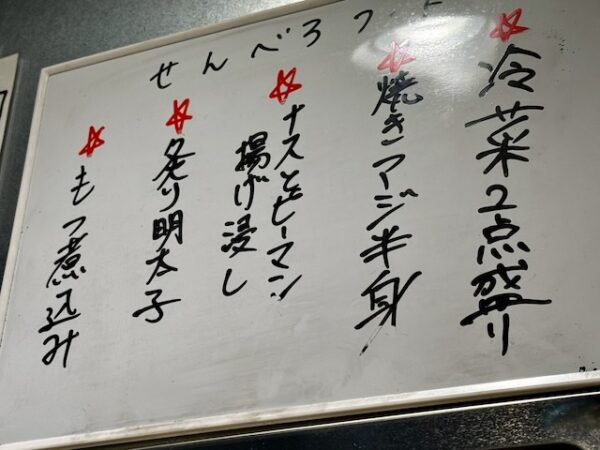 せんべろフード
☆冷菜2点盛り
☆焼きアジ半身
☆ナスとピーマン
揚げ浸し
☆炙り明太子
☆もつ煮込み